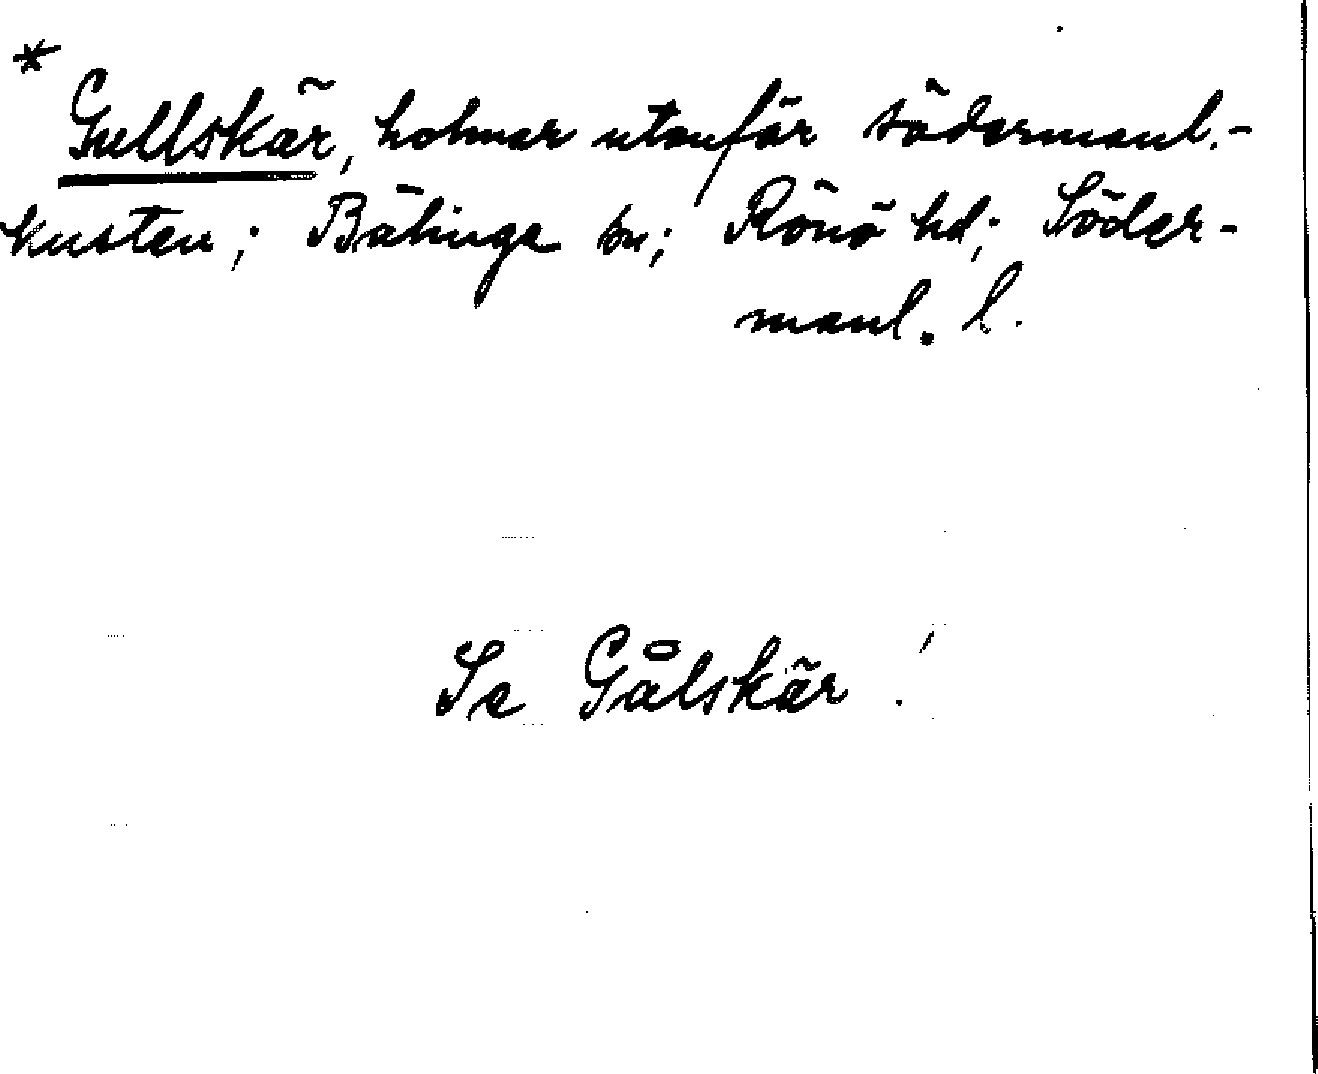 * Gullskär, holmar utanför södermanl.-
kusten; Bälinge sn; Rönö hd; Söder-
manl. l.
Se Gålskär!